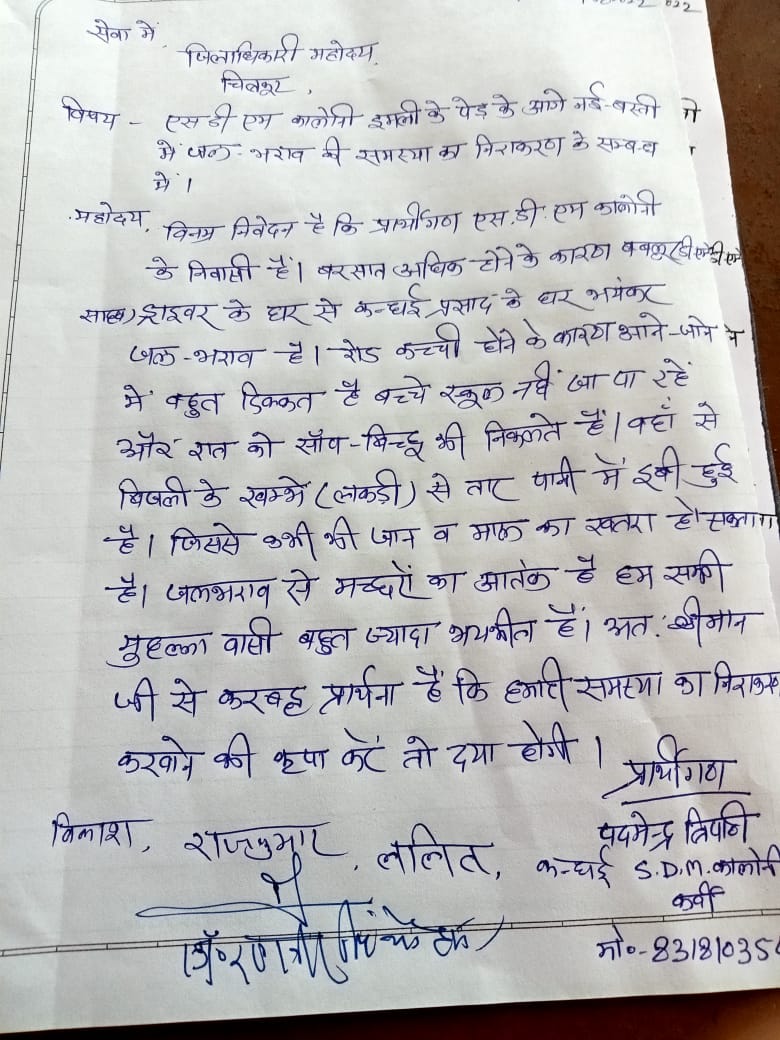 022
सेवा में,
जिलाधिकारी महोदय,
चित्रकूट,
विषय - एस डी एम कालोनी इमली के पेड़ के आगे नई-बस्ती
में जल-भराव की समस्या का निराकरण के सम्बन्ध
में।
महोदय,
विनम्र निवेदन है कि प्रार्थीगण एस.डी.एम कालोनी
के निवासी हैं। बरसात अधिक होने के कारण बबलू
साहब) ड्राइवर के घर से कन्धई प्रसाद के घर भयंकर
जल-भराव है। रोड कच्ची होने के कारण आने-जाने
में बहुत दिक्कत है बच्चे स्कूल नहीं जा पा रहें
और रात को साँप-बिच्छू भी निकलते हैं। वहाँ से
बिजली के खम्भे (लकड़ी) से तार पानी में डूबी हुई
है। जिससे कभी भी जान व माल का खतरा हो सकता
है। जलभराव से मच्छरों का आतंक है हम सभी
मुहल्ला वासी बहुत ज्यादा भयभीत हैं। अत: श्रीमान
जी से करबद्ध प्रार्थना है कि हमारी समस्या का निराकरण
करवाने की कृपा करें तो दया होगी।
प्रार्थीगण
विकाश, राजकुमार, ललित, कन्धई
पदमेन्द्र त्रिपाठी
S.D.M. कालोनी
कर्वी
मो०-83181035